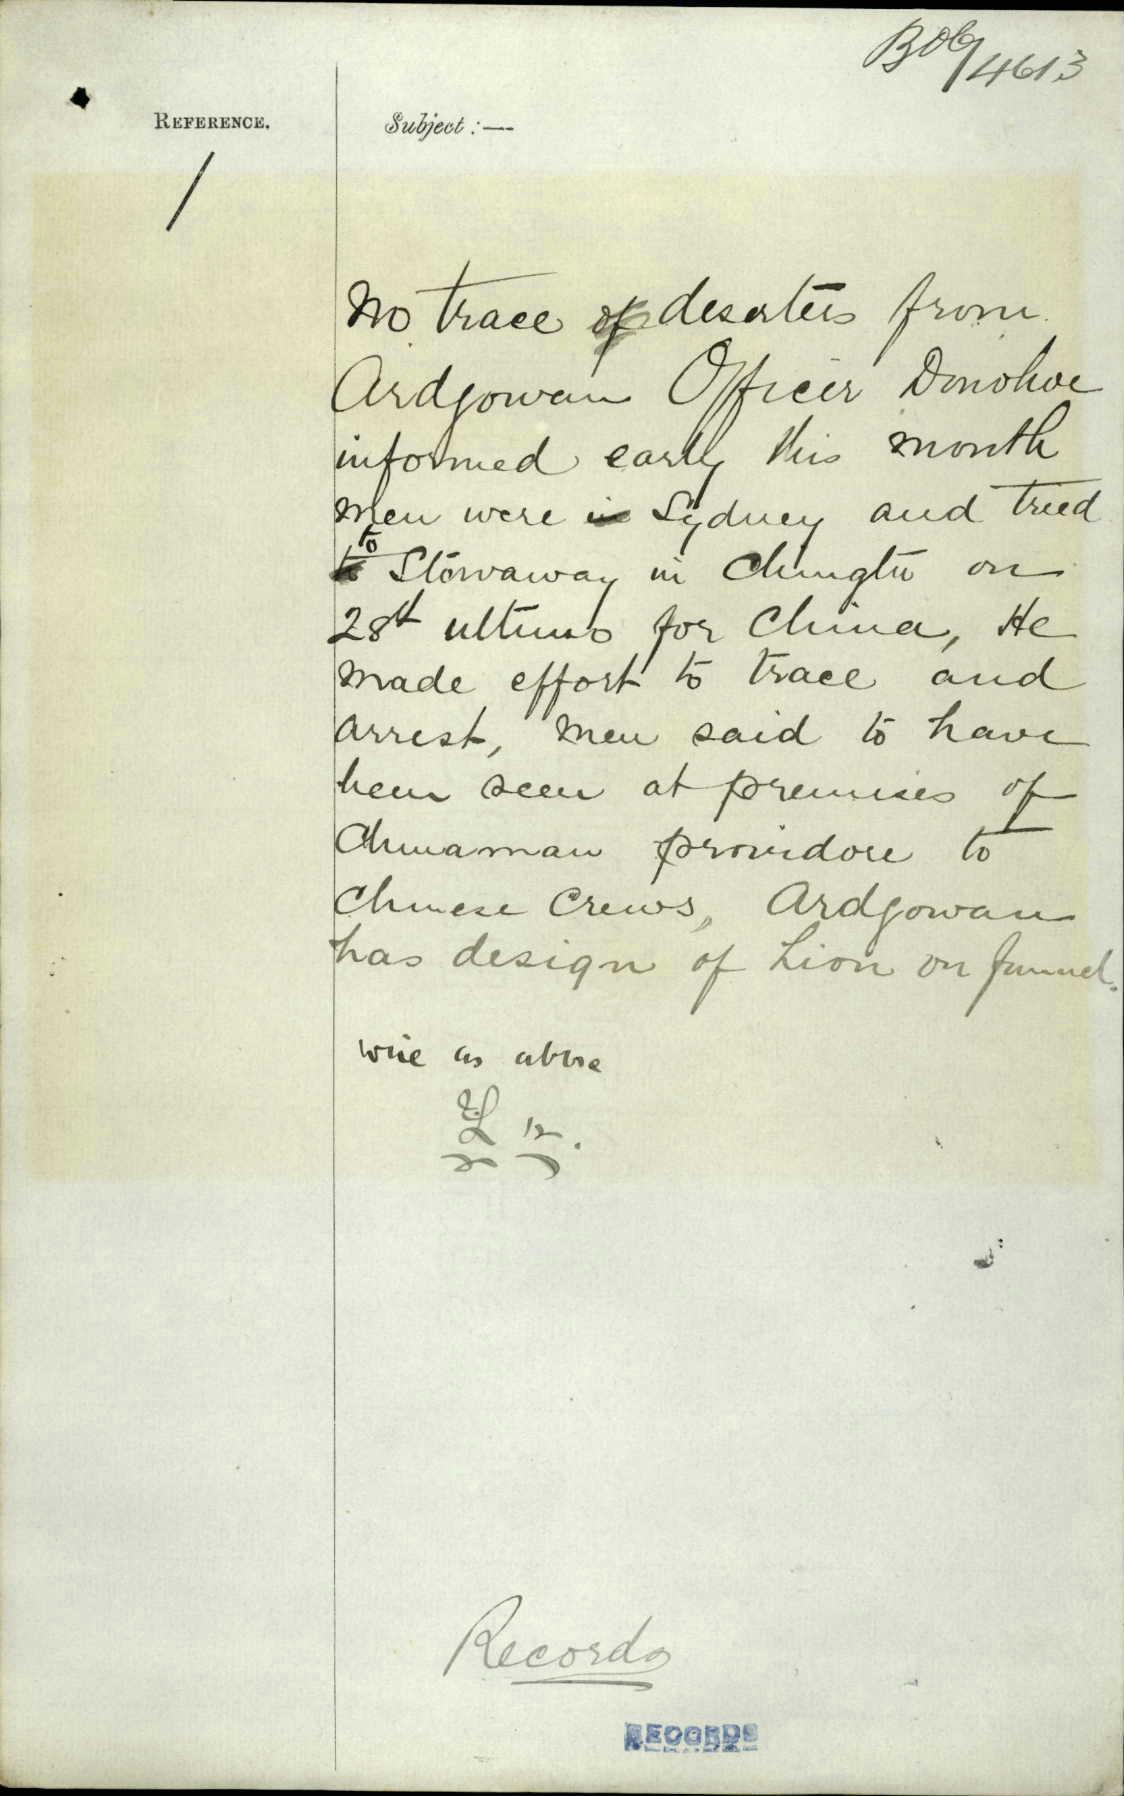 B06/4613
REFERENCE.
Subject :—
No trace of deserters from
Ardgowan Officer Donohoe
informed early this month
men were in Sydney and tried
to Stowaway in Chingtu on
28th ultimo for China, He
made effort to trace and
arrest, men said to have
been seen at premises of
Chinaman providore to
Chinese Crews, Ardgowan
has design of Lion on funnel.
wire as above
Records
RECORDS